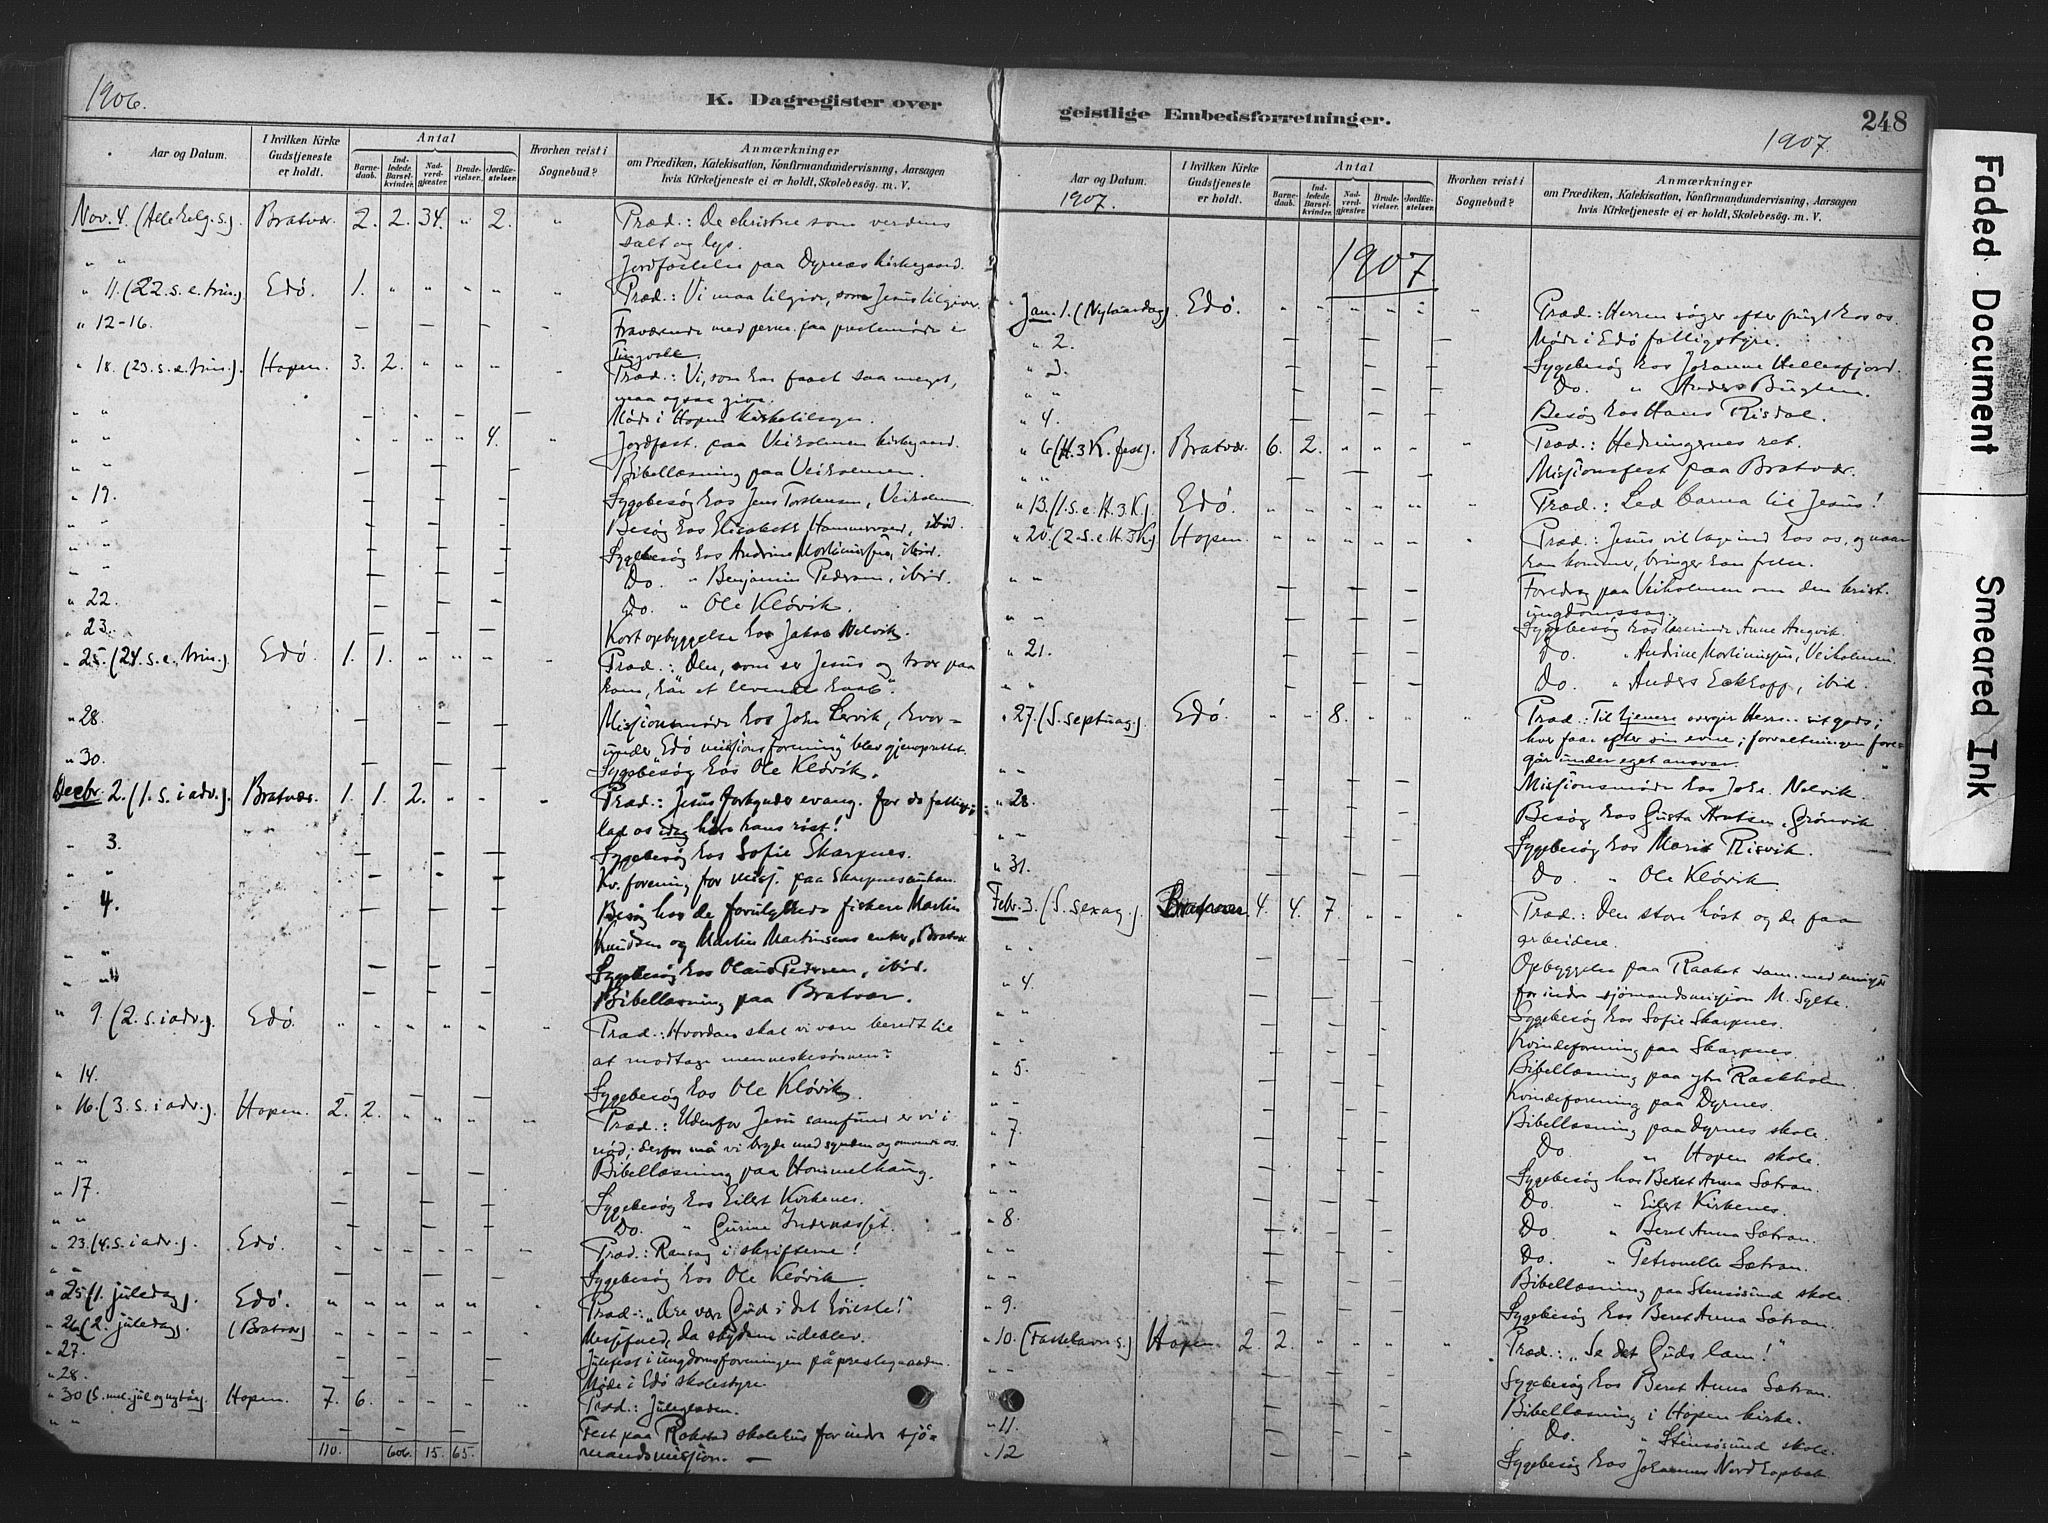 1906.
K. Dagregister over
Aar og Datum.
I hvilken Kirke Gudstjeneste er holdt.
Antal
Barnedaab.
Indledede Barselkvinder.
Nadverdgjester.
Brudevielser.
Jordfæstelser.
Hvorhen reist i Sognebud?
Anmærkninger
om Prædiken, Katekisation, Konfirmandundervisning, Aarsagen
hvis Kirketjeneste ei er holdt, Skolebesøg. m. V.
Nov. 4. (Alle helg. s.) Bratvær. 2. 2. 34. " 2. " Præd.: De christne som verdens
salt og lys.
" " Jordfæstelse paa Dyrnæs kirkegaard.
" 11. (22. s. e. trin.) Edö. 1. " " " " " Præd.: Vi maa tilgive, som Jesus tilgiver.
" 12-16. Fraværende med perm. paa prestemøde i
Tingvoll.
" 18. (23. s. e. trin.). Hopen. 3. 2. " " " " Præd.: Vi, som har faaet saa meget,
maa ogsaa give.
" " Møde i Hopen kirketilsyn.
" " " " " " 4. " Jordfæst. paa Veiholmen kirkegaard.
" " Bibellæsning paa Veiholmen.
" 19. Sygebesøg hos Jens Torstensen, Veiholmen
" " Besøg hos Elisabeth Hammervold, ibid.
" " Sygebesøg hos Andrine Mortinussen, ibid.
" " Do. " Benjamin Pedersen, ibid.
" 22. Do. " Ole Kløvik.
" 23. Kort opbyggelse hos Jakob Nelvik.
" 25. (24. s. e. trin.). Edö. 1. 1. " " " " Præd.: Den, som ser Jesus og tror paa
ham, har et levende haab".
" 28. Missionsmøde hos John Lervik, hvor-
under Edö missionsforening" blev gjenoprettet.
" 30. Sygebesøg hos Ole Kløvik.
Decbr. 2. (1. s. i adv.). Bratvær. 1. 1. 2. " " " Præd.: Jesus forkynder evang. for de fattige;
lad os idag høre hans røst!
" 3. Sygebesøg hos Sofie Skarpnes.
" " Kv.forening for miss. paa Skarpnes
" 4. Besøg hos de forulykkede fiskere Martin
Knudsen og Martin Martinsens enker, Bratvær
" " Sygebesøg hos Olaus Pedersen, ibid.
" " Bibellæsning paa Bratvær.
" 9. (2. s. i adv.). Edö. " " " " " " Præd.: Hvordan skal vi være beredt til
at modtage menneskesønnen?
" 14. Sygebesøg hos Ole Kløvik.
" 16. (3. s. i adv.). Hopen. 2. 2. " " " " Præd.: Udenfor Jesu samfund er vi i
nød; derfor må vi bryde med synden og omvende os.
" " Bibellæsning paa Hommelhaug.
" 17. Sygebesøg hos Eilert Kirkenes.
" " Do. " Gurine Indernæsset.
" 23. (4. s. i adv.). Edö. " " " " " " Præd.: Ransag i skrifterne!
" " Sygebesøg hos Ole Kløvik.
" 25 (1. juledag). Edö. " " " " " " Præd.: „Ære vær Gud i det høieste!"
" 26 (2. juledag). (Bratvær) Messefald, da skydsen udeblev.
" 27. Julefest i ungdomsforeningen på prestegaarden.
" 28. Møde i Edö skolestyre.
" 30 (S. mel. jul og nytår). Hopen. 7. 6. " " " " Præd.: Juleglæden.
" " Fest paa Rokstad skolehus for indre sjø-
mandsmission. —
110. 606. 15. 65.
geistlige Embedsforretninger.
248
1907.
Aar og Datum.
1907.
I hvilken Kirke Gudstjeneste er holdt.
Antal
Barnedaab.
Indledede Barselkvinder.
Nadverdgjester.
Brudevielser.
Jordfæstelser.
Hvorhen reist i Sognebud?
Anmærkninger
om Prædiken, Katekisation, Konfirmandundervisning, Aarsagen
hvis Kirketjeneste ei er holdt, Skolebesøg. m. V.
1907
Jan. 1. (Nytaarsdag). Edö. " " " " " " Præd.: Herren søger efter frugt hos os.
" 2. Møde i Edö fattigstyre.
" 3. Sygebesøg hos Johanne Hellesfjord.
" " Do. " Anders Bugten.
" 4. Besøg hos Hans Risdal.
" 6 (H. 3 K. fest). Bratvær. 6. 2. " " " " Præd.: Hedningernes ret.
" " Missionsfest paa Bratvær.
" 13. (1. s. e. H. 3 K). Edö. " " " " " " Præd.: Led børna til Jesus!
" 20. (2. s. e. H. 3 K) Hopen. " " " " " " Præd.: Jesus vil tage ind hos os, og naar
han kommer, bringer han frelse.
" " Foredrag paa Veiholmen om den krist.
ungdomssag.
" " Sygebesøg hos lærerinde Anne Angvik.
" 21. Do. " Andrine Mortinussen, Veiholmen.
" " Do. " Anders Eckhoff, ibid.
" 27. (S. septuag). Edö. " " 8. " " " Præd.: Til tjenere overgir Herren sit gods;
hver faar efter sin evne; forvaltningen fore-
går under eget ansvar.
" " Missionsmøde hos Joh. Nelvik.
" 28. Besøg hos Gusta Knutsen, Grønvik
" " Sygebesøg hos Marit Risvik.
" 31. Do. " Ole Kløvik.
Febr. 3. (S. sexag.). Bratvær 4. 4. 7. " " " Præd.: Den store høst og de faa
arbeidere.
" " Opbyggelse paa Raaket sam. med emissær
for indre sjømandsmission M. Sylte.
" 4. Sygebesøg hos Sofie Skarpnes.
" " Kvindeforening paa Skarpnes.
" " Bibellæsning paa ytre Raakholm.
" 5. Kvindeforening paa Dyrnes.
" " Bibellæsning paa Dyrnes skole.
" 7. Do. " Hopen skole.
" " Sygebesøg hos Beret Anna Sætran.
" " Do. " Eilert Kirkenes.
" 8. Do " Beret Anna Sætran.
" " Do. " Petronelle Sætran.
" " Bibellæsning paa Stensøsund skole.
" 9. Sygebesøg hos Beret Anna Sætran.
" 10. (Fastelavns s.) Hopen. 2. 2. " " " " Præd.: „Se det Guds lam!"
" " Sygebesøg hos Beret Anna Sætran.
Bibellæsning i Hopen kirke.
" 11. Do. " Stensøsund skole.
" 12 Sygebesøg hos Johannes Nordhopbak
Faded Document
Smeared Ink